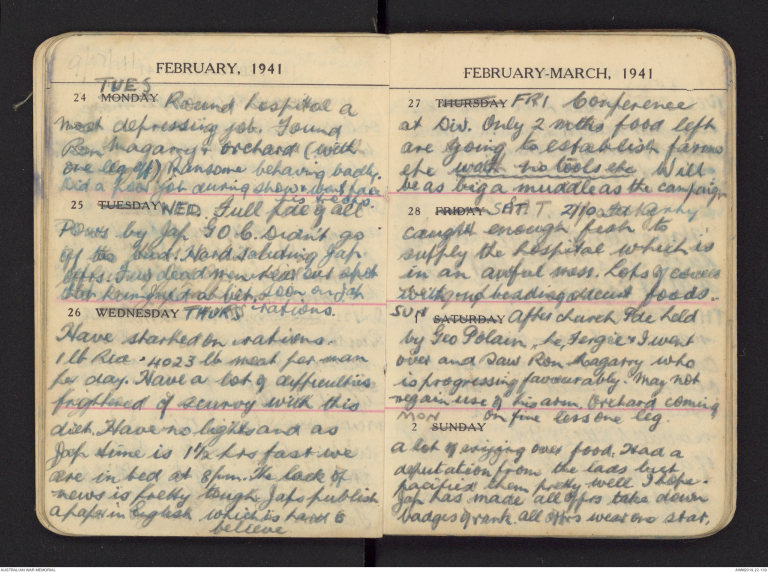 FEBRUARY, 1941
TUES
24 MONDAY Round hospital a
most depressing job. Found
Ron Magarry & Orchard (with
one leg off) Ransome behaving badly.
Did a
job during show & wont face
its troops.
25 TUESDAY WED. Full pde of all
POWs by Jap GOC. Didn't go
off too bad. Hard saluting Jap
offrs. Few dead men near our spot
but
soon on Jap
rations.
26 WEDNESDAY THURS
Have started on rations.
1 lb Rice · 4023 lb meat per man
per day. Have a lot of difficulties
frightened of scurvy with this
diet. Have no lights and as
Jap time is 1½ hrs fast we
are in bed at 8pm. The lack of
news is pretty tough Japs publish
a paper in English which is hard to
believe
FEBRUARY-MARCH, 1941
27 THURSDAY FRI Conference
at Div. Only 2 mths food left
are going to establish farms
etc with no tools etc. Will
be as big a muddle as the campaign
28 FRIDAY SAT. 2/10 Fd
caught enough fish to
supply the hospital which is
in an awful mess. Lots of cases
decent foods.
SUN
1 SATURDAY After church Pde held
by Geo Polain, Lc, Fergie & I went
over and saw Ron Magarry who
is progressing favourably. May not
regain use of his arm. Orchard coming
on fine less one leg.
MON
2 SUNDAY
a lot of
over food. Had a
deputation from the lads but
pacified them pretty well I hope.
Jap has made all offrs take down
badges of rank. All offrs wear one star.
AUSTRALIAN WAR MEMORIAL